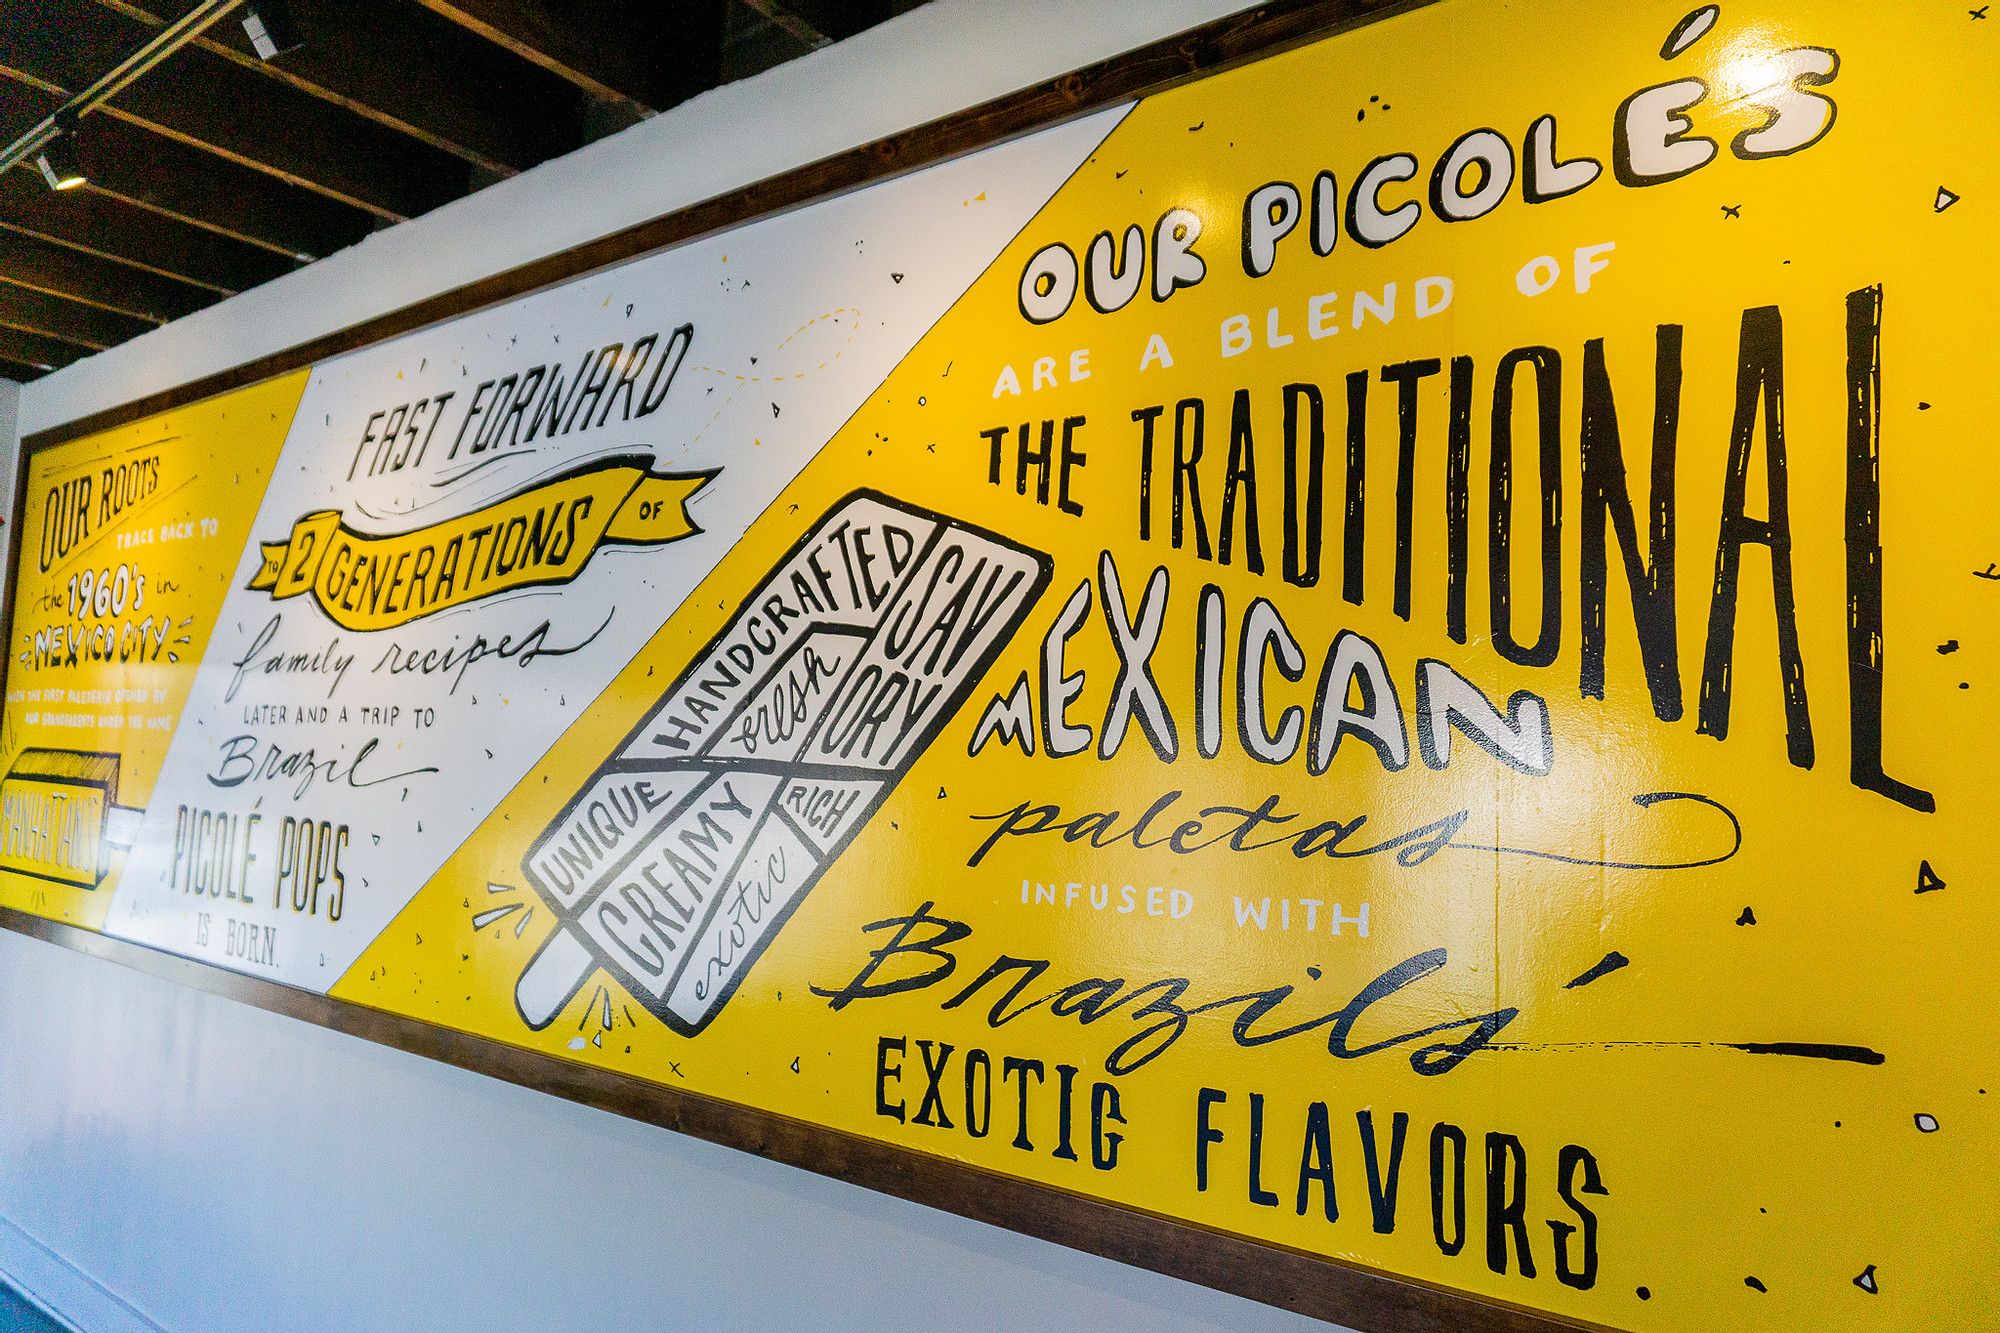 OUR ROOTS
TRACE BACK TO
the 1960's in
MEXICO CITY
WITH THE FIRST PALETERIA OPENED BY
OUR GRANDPARENTS UNDER THE NAME
MANHATTANS
FAST FORWARD
TO 2 GENERATIONS OF
family recipes
LATER AND A TRIP TO
Brazil,
PICOLÉ POPS
IS BORN.
HANDCRAFTED
fresh
SAV
ORY
UNIQUE
CREAMY
RICH
exotic
OUR PICOLÉS
ARE A BLEND OF
THE TRADITIONAL
MEXICAN
paletas
INFUSED WITH
Brazils'
EXOTIC FLAVORS.